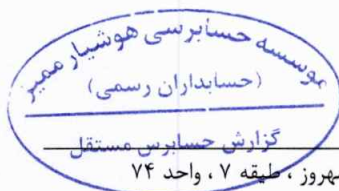 موسسه حسابرسی هوشیار ممیز
(حسابداران رسمی)
گزارش حسابرس مستقل
بهروز ، طبقه ۷ ، واحد ۷۴